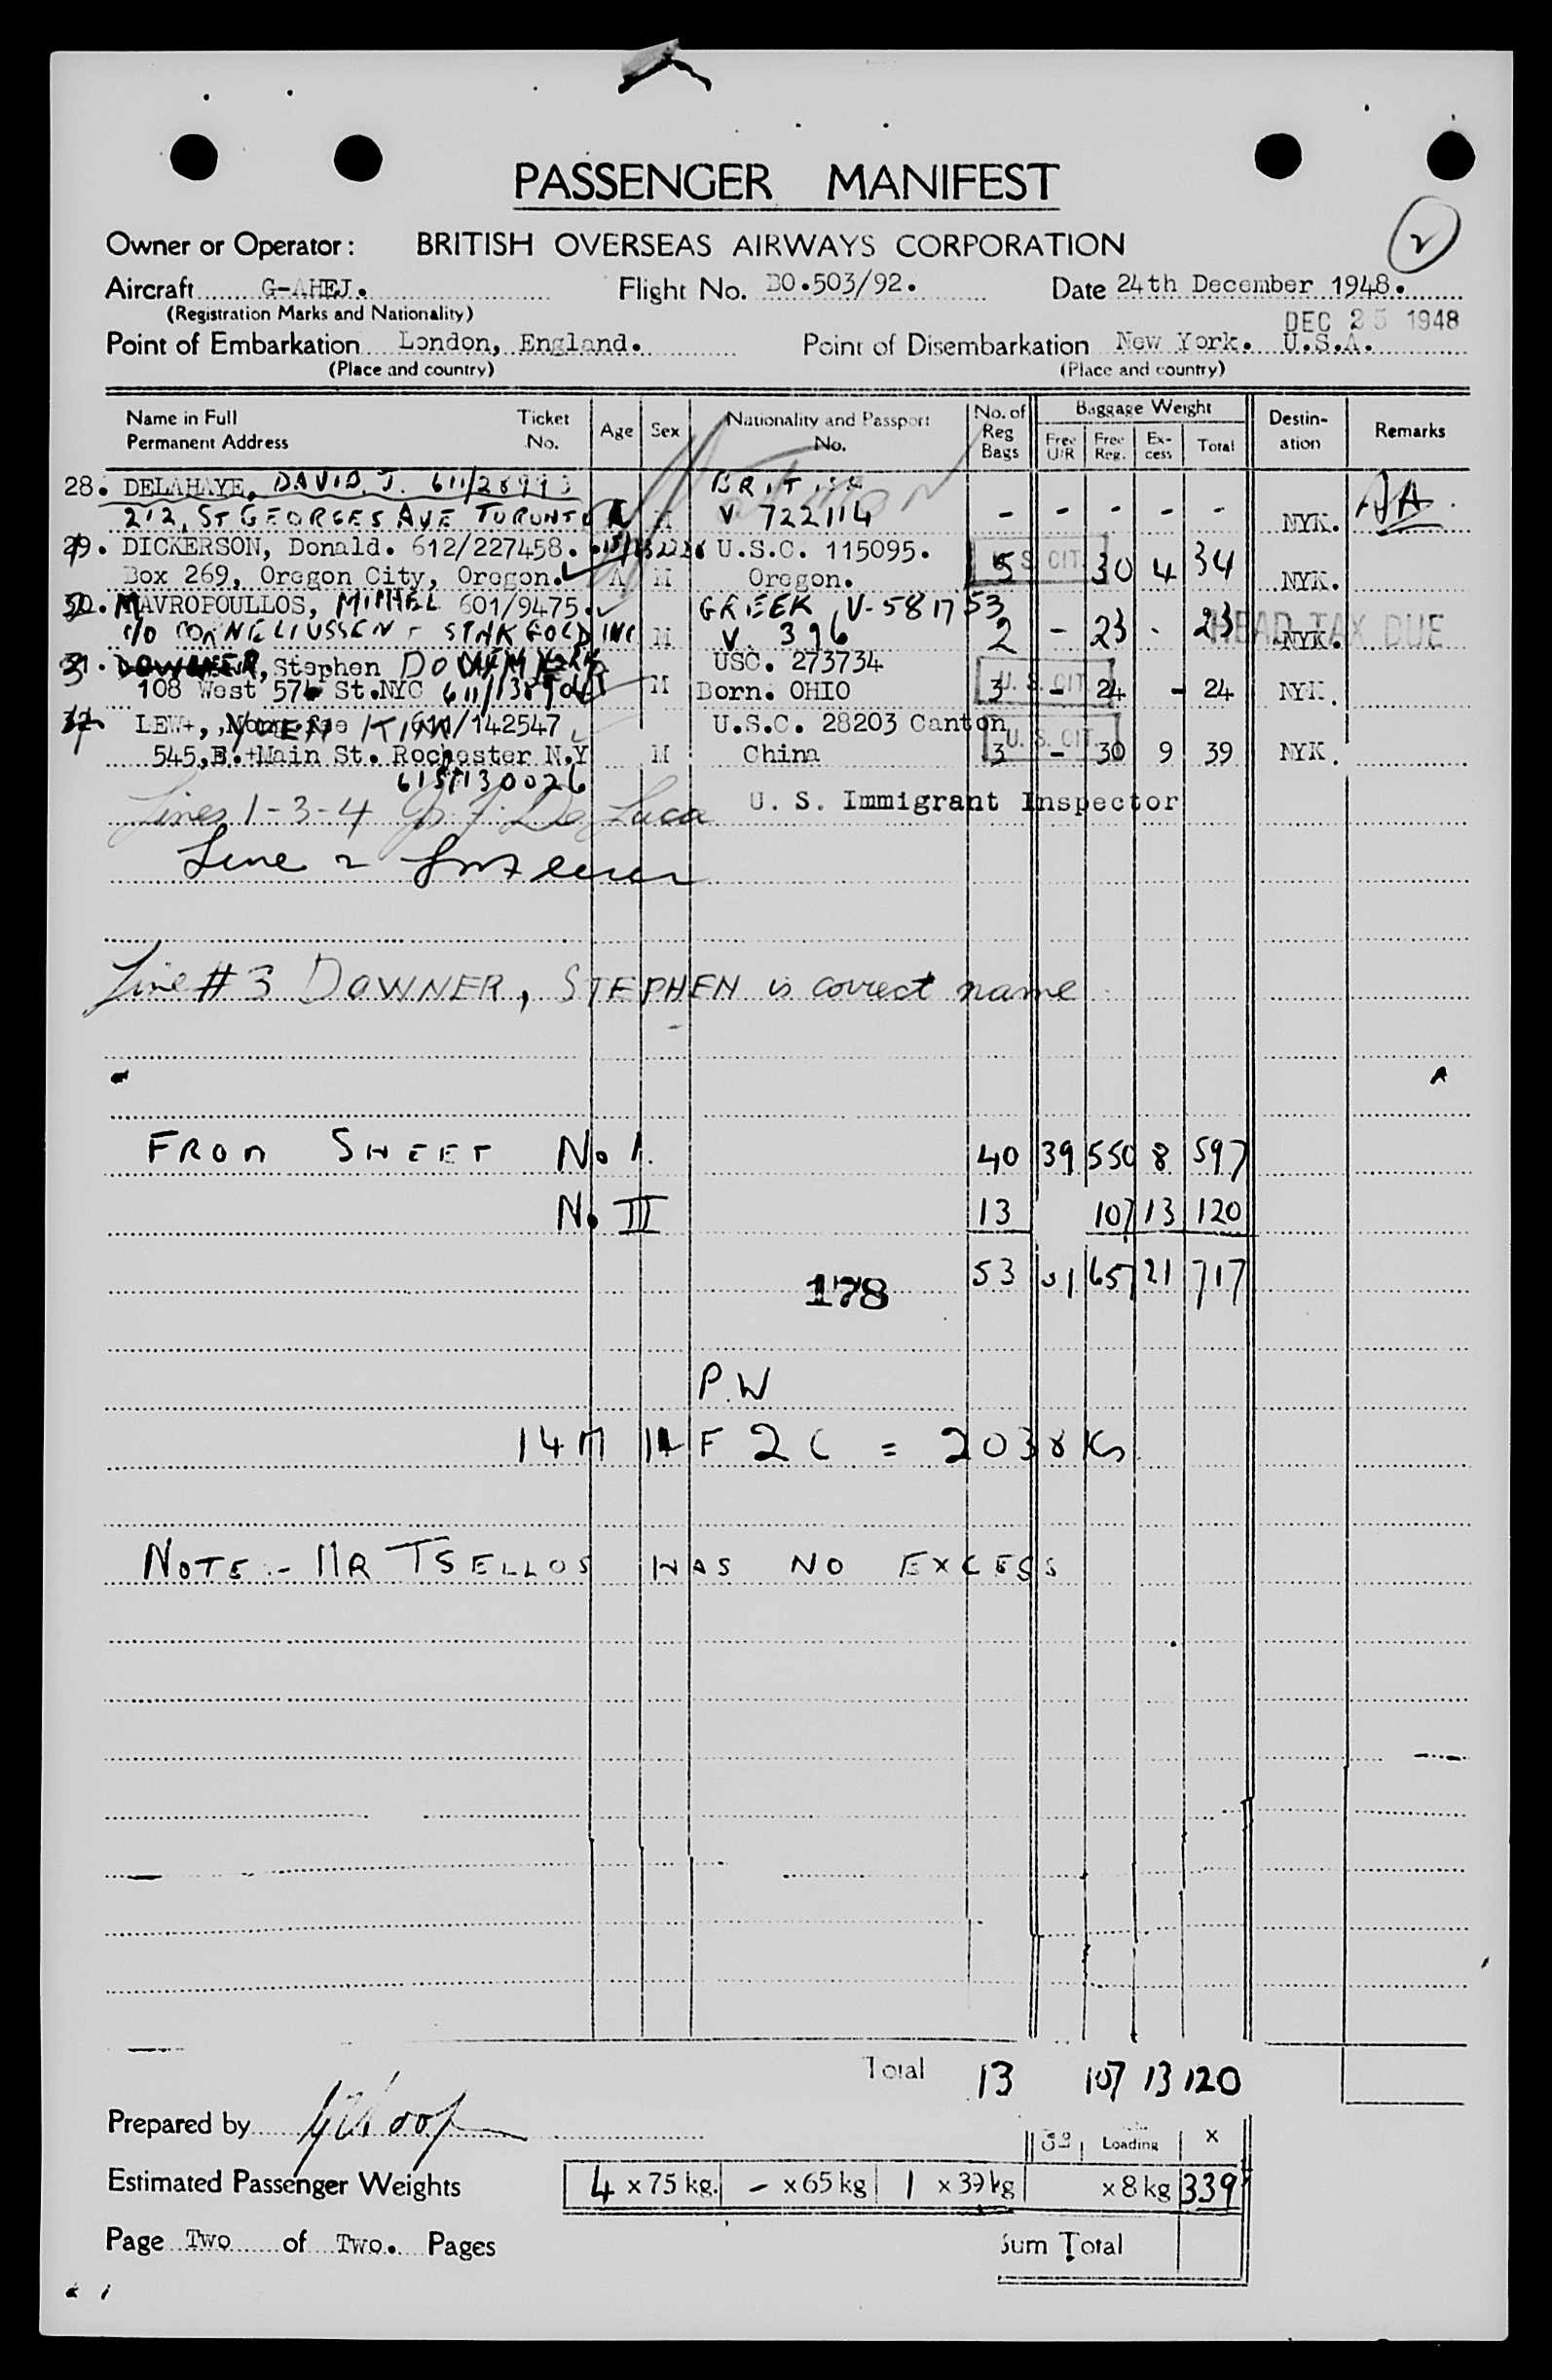 PASSENGER MANIFEST
2
Owner or Operator: BRITISH OVERSEAS AIRWAYS CORPORATION
Aircraft G-AHEJ. Flight No. BO.503/92. Date 24th December 1948.
(Registration Marks and Nationality)
DEC 25 1948
Point of Embarkation London, England. Point of Disembarkation New York. U.S.A.
(Place and country) (Place and country)
Name in Full Ticket Age Sex Nationality and Passport No. of Baggage Weight Destin- Remarks
Permanent Address No. No. Reg Bags Free U/R Free Reg. Ex-cess Total ation
28. DELAHAYE, DAVID. J. 611/28993 BRITISH
212, ST GEORGES AVE TORONTO A M V 722114 - - - - - NYK. AA
29. DICKERSON, Donald. 612/227458. U.S.C. 115095. U.S. CIT.
Box 269, Oregon City, Oregon. A M Oregon. 5 30 4 34 NYK.
30. MAVROPOULLOS, 601/9475. GREEK V-581753
C/O CORNELIUSSEN & STAKGOLD INC M V. 396 2 - 23 . 23 NYK. HEAD TAX DUE
31. DOWNER, Stephen USC. 273734
108 West 57th St. NYC M Born. OHIO 3 - 24 - 24 NYK. U.S. CIT.
32. LEW, YUEN KIM 611/142547 U.S.C. 28203 Canton
545, E. Main St. Rochester N.Y M China 3 - 30 9 39 NYK. U.S. CIT.
615/130026
Lines 1-3-4 De Luca U. S. Immigrant Inspector
Line 2
Line #3 DOWNER, STEPHEN is correct name
FROM SHEET No 1. 40 39 550 8 597
No II 13 107 13 120
53 657 21 717
178
P.W
14M F 2 C = 2038 Ks
NOTE:- MR TSELLOS HAS NO EXCESS
Total 13 107 13 120
Prepared by
Loading x
Estimated Passenger Weights 4 x 75 kg. - x 65 kg 1 x 39 kg x 8 kg 339
Page Two of Two. Pages Sum Total